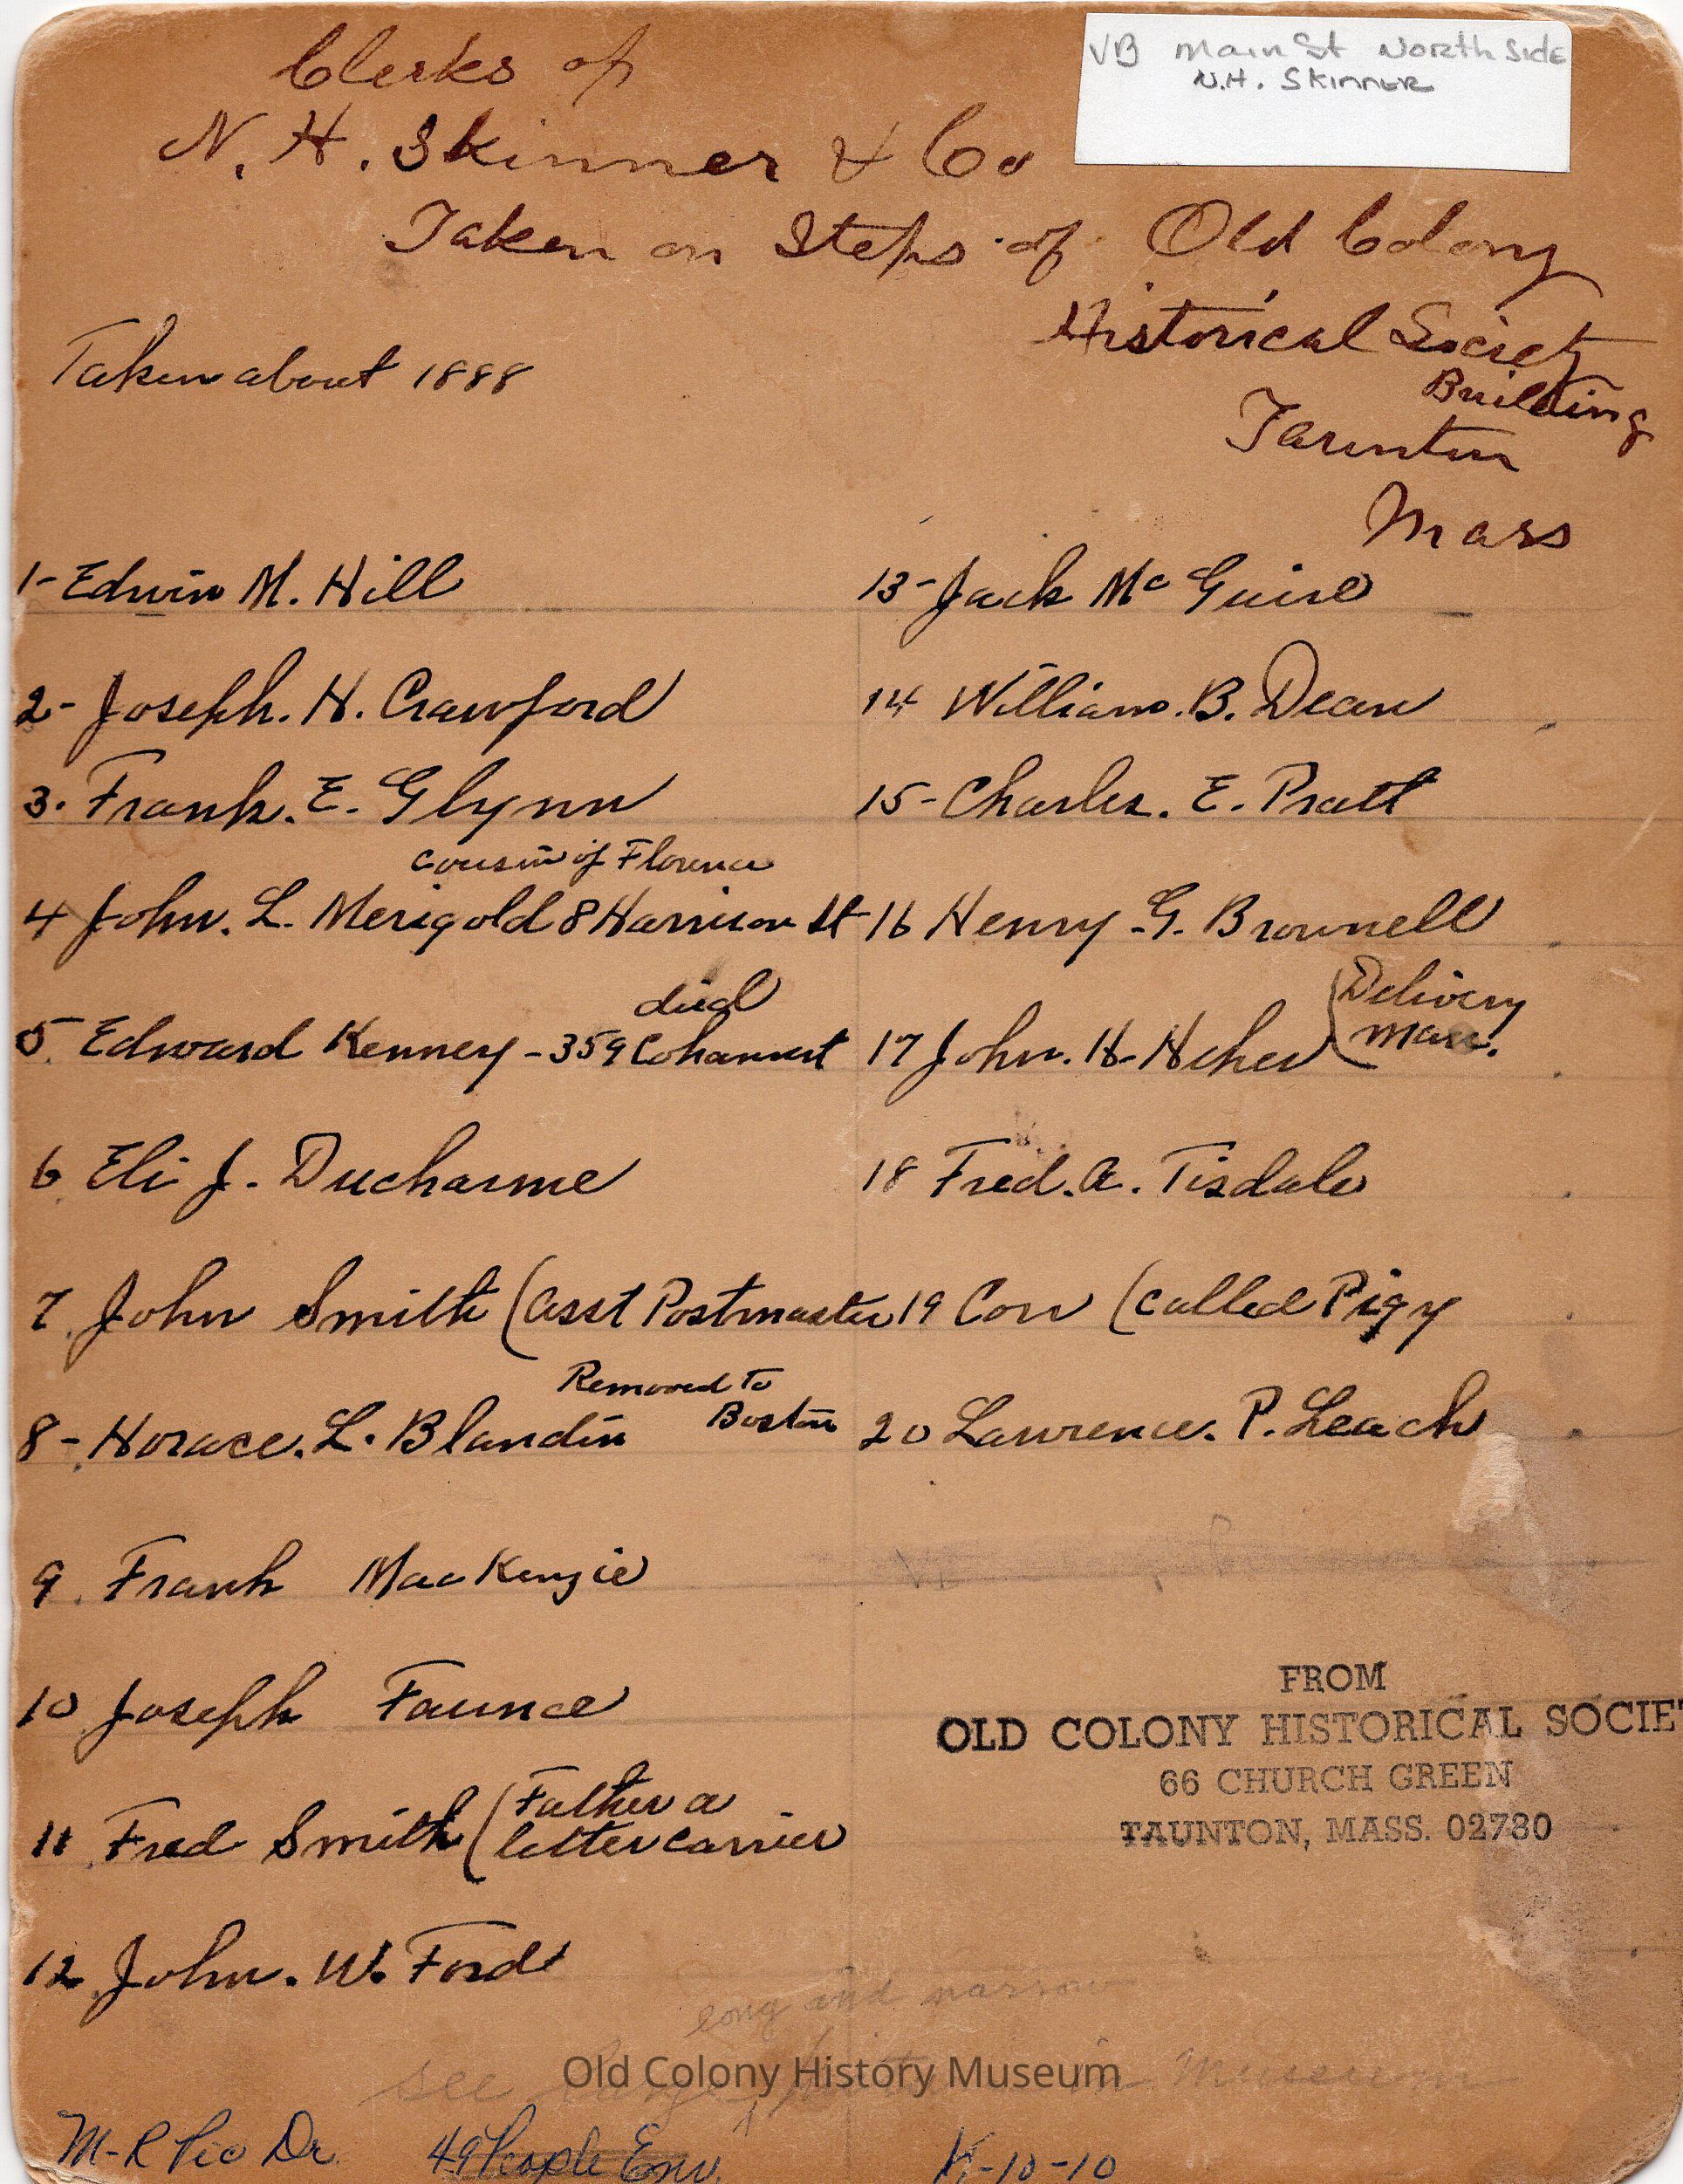 VB Main St North Side
N.H. Skinner
Clerks of
N. H. Skinner & Co
Taken on Steps of Old Colony
Historical Society
Building
Taunton
Mass
Taken about 1888
1- Edwin M. Hill
2- Joseph. H. Crawford
3. Frank. E. Glynn
cousin of Florence
4 John. L. Merigold 8 Harrison St
died
5. Edward Kenney - 359 Cohannet
6 Eli J. Ducharme
7. John Smith (asst Postmaster
Removed to
Boston
8- Horace. L. Blandin
9. Frank MacKenzie
10 Joseph Faunce
11. Fred Smith (Father a
letter carrier
12. John. W. Ford
13- Jack Mc Guire
14 William. B. Dean
15- Charles. E. Pratt
16 Henry G. Brownell
17 John. H. (Delivery
man.
18 Fred. A. Tisdale
19 Corr (called Pigy
20 Lawrence. P. Leach
FROM
OLD COLONY HISTORICAL SOCIET
66 CHURCH GREEN
TAUNTON, MASS. 02780
long and narrow
see large in Museum
Old Colony History Museum
M-R Pic Dr. 49 People Env. 10-10